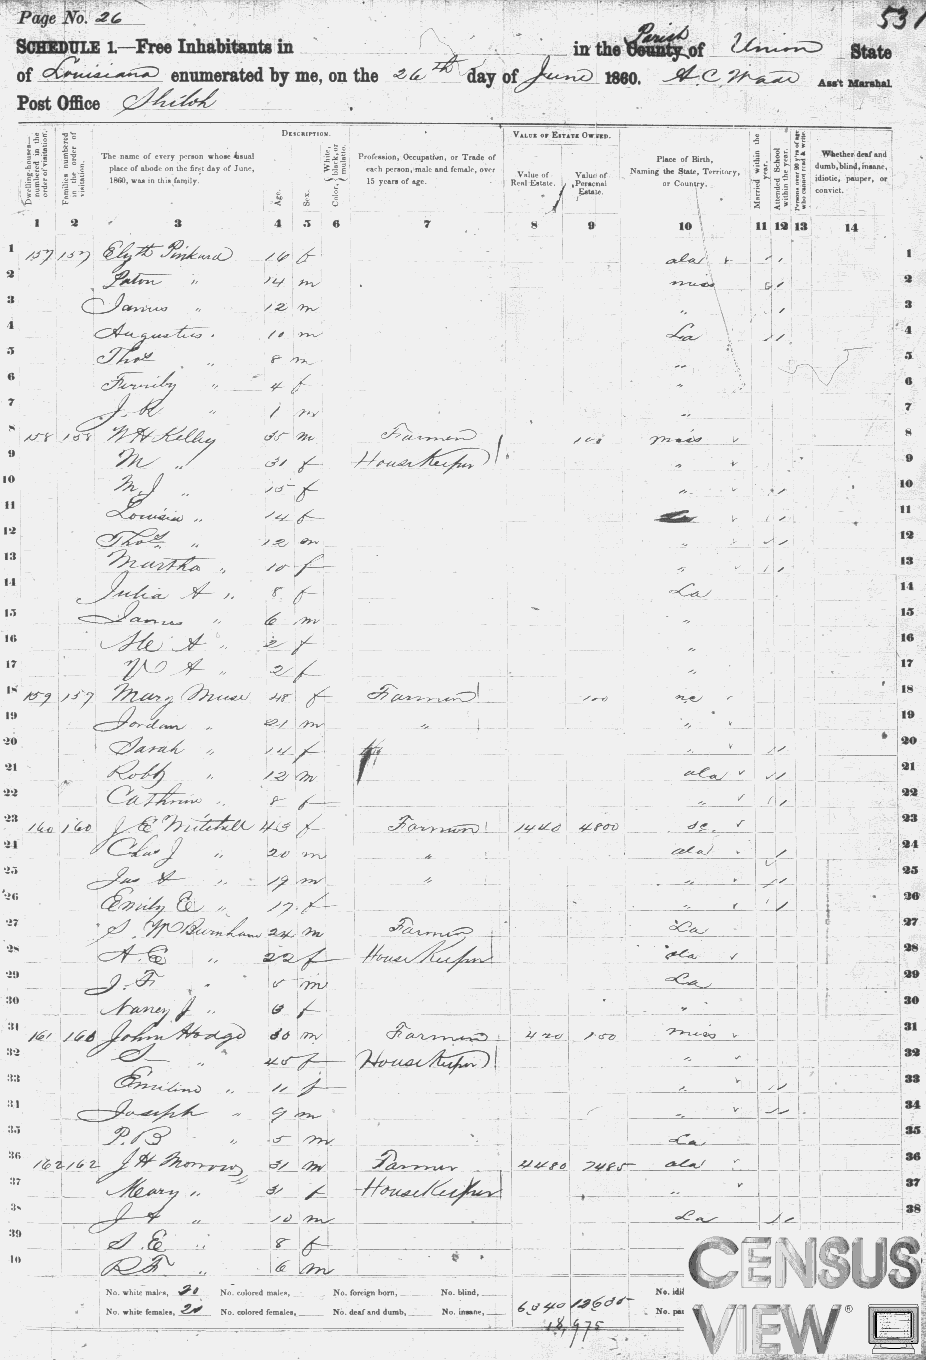 Page No. 26 531
SCHEDULE 1.—Free Inhabitants in in the County Parish of Union State
of Louisiana enumerated by me, on the 26th day of June 1860. A. C. Wade Ass't Marshal.
Post Office Shiloh
Dwelling-houses— numbered in the order of visitation. Families numbered in the order of visitation. The name of every person whose usual place of abode on the first day of June, 1860, was in this family. DESCRIPTION. Age. Sex. Color, White, black, or mulatto. Profession, Occupation, or Trade of each person, male and female, over 15 years of age. VALUE OF ESTATE OWNED. Value of Real Estate. Value of Personal Estate. Place of Birth, Naming the State, Territory, or Country. Married within the year. Attended School within the year. Persons over 20 y'rs of age who cannot read & write. Whether deaf and dumb, blind, insane, idiotic, pauper, or convict.
1 2 3 4 5 6 7 8 9 10 11 12 13 14
1 157 157 Pinkard 16 f ala 1
2 Paton " 14 m miss 2
3 James " 12 m " 3
4 Augustus " 10 m La 4
5 Thos " 8 m " 5
6 " 4 f " 6
7 J. R " 1 m " 7
8 158 158 W H Kelley 35 m Farmer 100 miss 8
9 M " 31 f House Keeper " 9
10 M. J " 15 f " 10
11 Louisia " 14 f 11
12 Thos " 12 m " 12
13 Martha " 10 f " 13
14 Julia A " 8 f La 14
15 James " 6 m " 15
16 A " 2 f " 16
17 A " 2 f " 17
18 159 157 Mary Muse 48 f Farmer 100 nc 18
19 Jordan " 21 m " " 19
20 Sarah " 14 f " 20
21 Robt " 12 m ala 21
22 Cathrine " 8 f " 22
23 160 160 J E Mitchell 43 f Farmer 1440 4800 sc 23
24 Chas J " 20 m " ala 24
25 Jas A " 19 m " " 25
26 Emily E " 17 f " 26
27 S. W Burnham 24 m Farmer La 27
28 A. E " 22 f House Keeper ala 28
29 J. F " 5 m La 29
30 Nancy J " 3 f " 30
31 161 160 John Hodge 30 m Farmer 420 150 miss 31
32 S " 45 f House Keeper " 32
33 Emiline " 11 f " 33
34 Joseph " 9 m " 34
35 P. B " 5 m La 35
36 162 162 J H Morrow 31 m Farmer 4480 7485 ala 36
37 Meary " 31 f House Keeper " 37
38 J A " 10 m La 38
39 S. E " 8 f
40 R F " 6 m
No. white males, 20 No. colored males, No. foreign born, No. blind, No. idi
No. white females, 20 No. colored females, No. deaf and dumb, No. insane, 6340 12635 No. pa
18,975
CENSUS
VIEW®